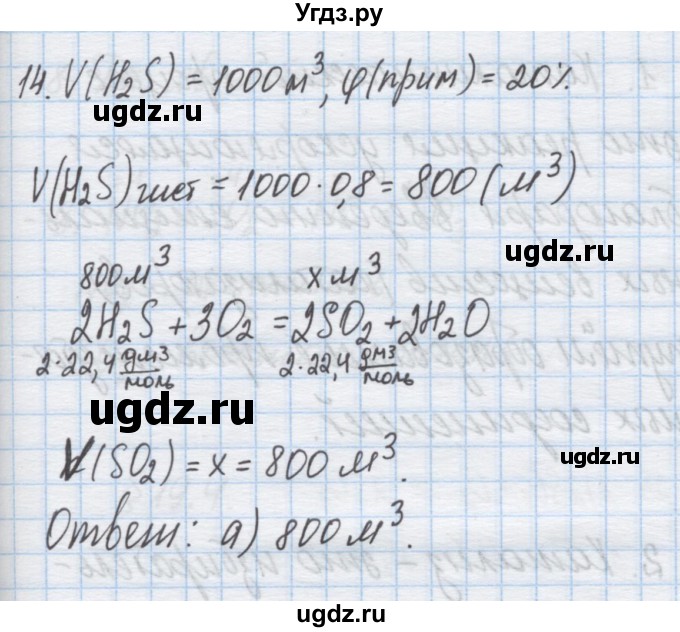 Угдз.ру
14. V(H₂S) = 1000 м³, φ(прим) = 20%
ugdz.ru
V(H₂S) чист = 1000·0,8 = 800 (м³)
800 м³ x м³
2H₂S + 3O₂ = 2SO₂ + 2H₂O
2·22,4 дм³/моль 2·22,4 дм³/моль
ugdz.ru
ugdz.ru
V(SO₂) = x = 800 м³.
Ответ: а) 800 м³.
ugdz.ru
ugdz.ru